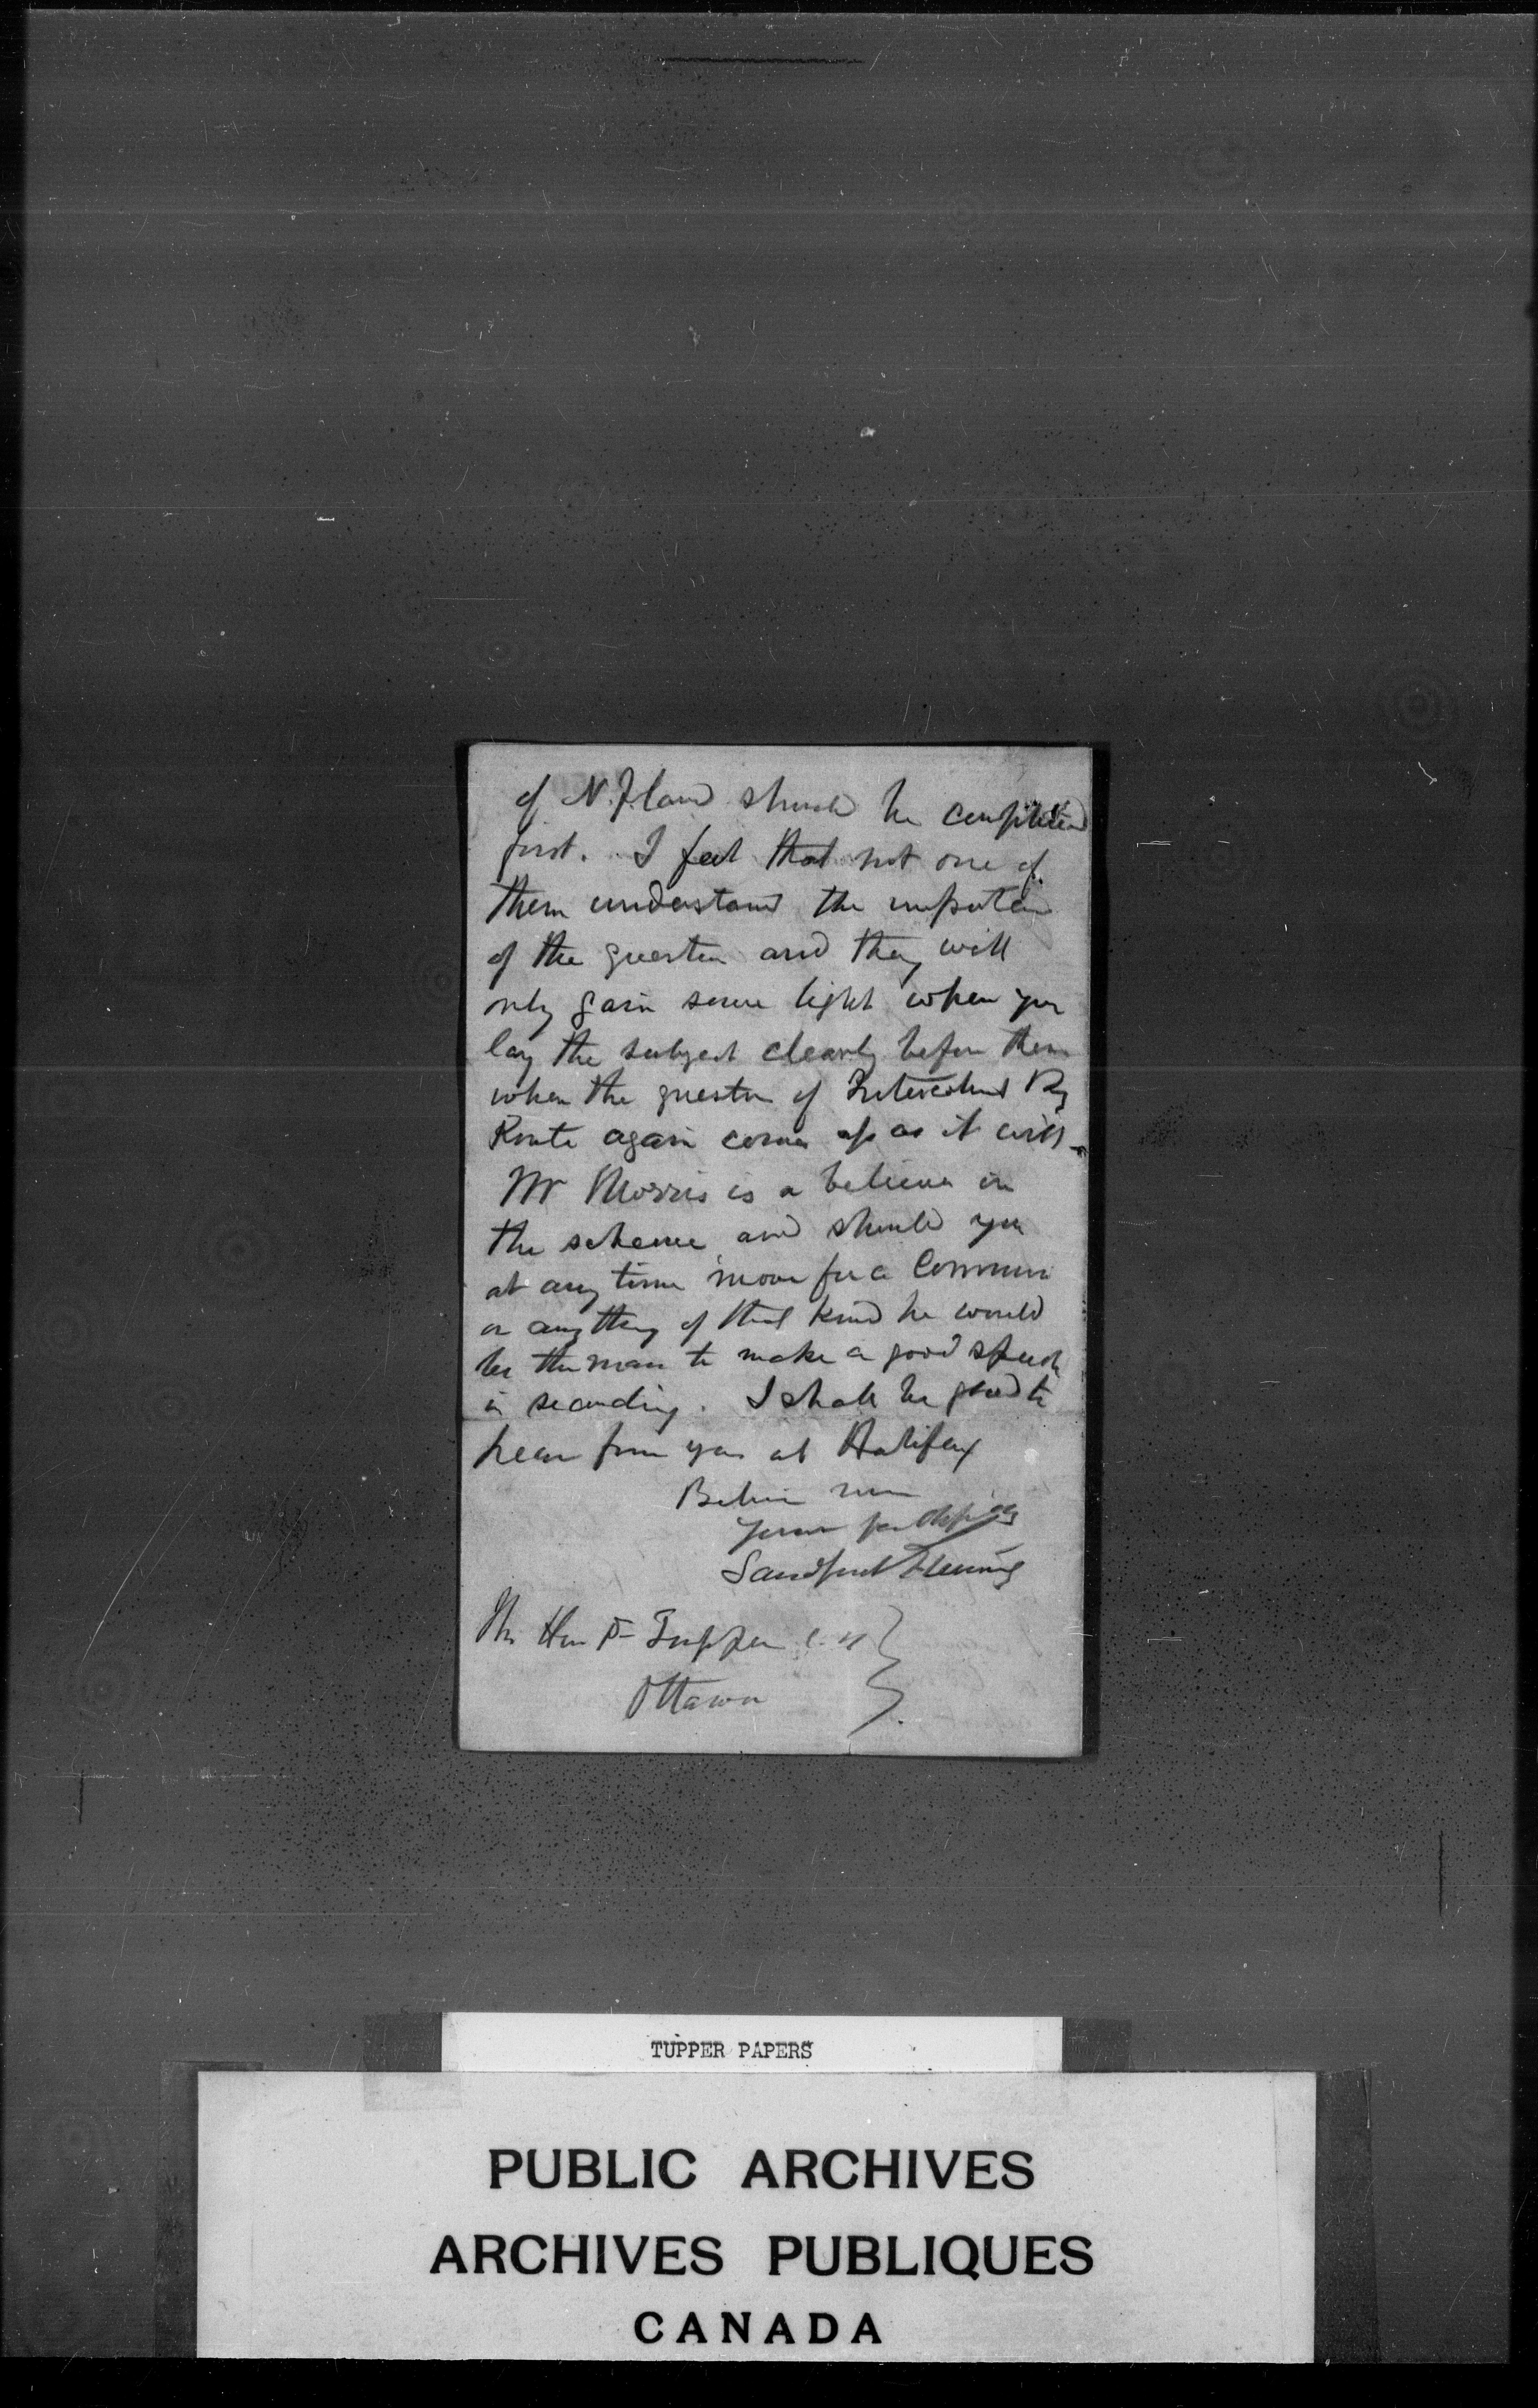 of N.Fland should be completed
first. I feel that not one of
them understand the importance
of the question and they will
only gain some light when you
lay the subject clearly before them
when the question of Intercolonial Ry
Route again comes up as it will -
Mr Morris is a believer in
the scheme and should you
at any time move for a Commee
or any thing of that kind he would
be the man to make a good speech
in seconding. I shall be glad to
hear from you at Halifax
Believe me
Yours faithfully
Sandford Fleming
The Hon Dr Tupper C.B.
Ottawa
TUPPER PAPERS
PUBLIC ARCHIVES
ARCHIVES PUBLIQUES
CANADA